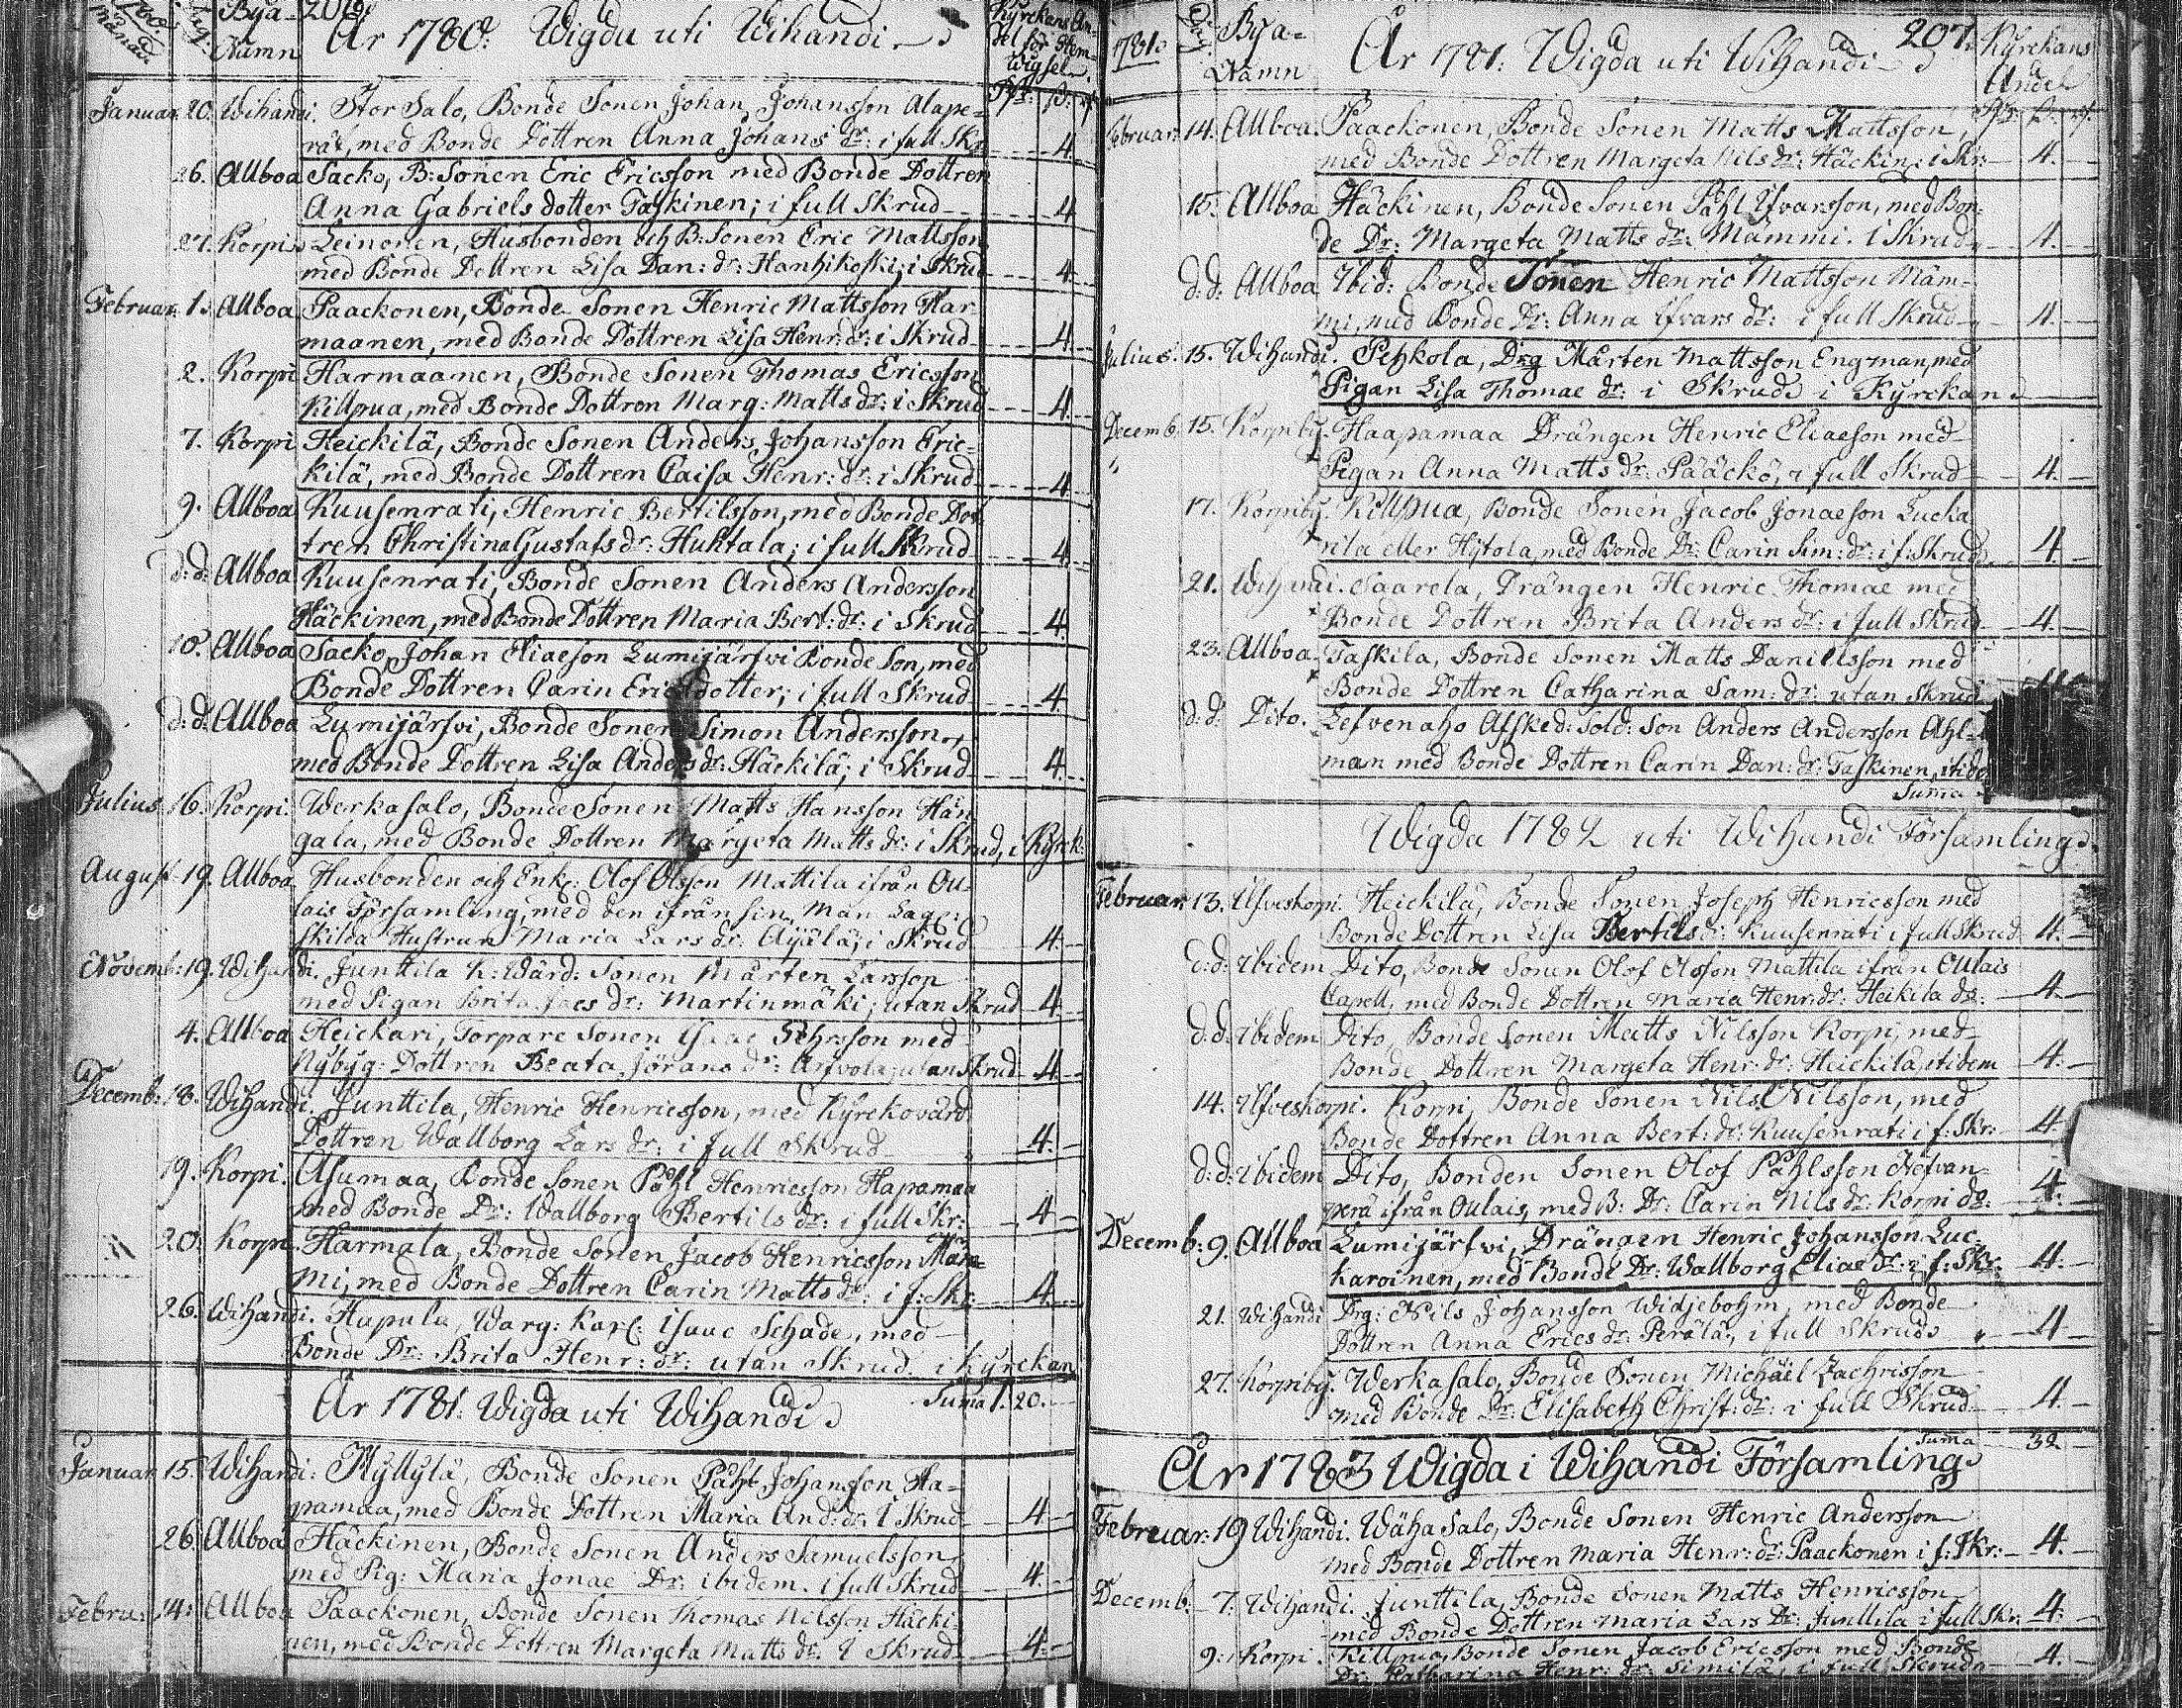 1780. Månad
Dag.
Bya-Namn
206.
År 1780: Wigda uti Wihandi
Kyrckans Andel för Hemwigsel.
Januar. 20. Wihandi. Stor Salo, Bonde Sonen Johan Johansson Alape-
rät, med Bonde Dottren Anna Johans dr: i full Skr. 4.
26. Allboa Sacko, B: Sonen Eric Ericsson med Bonde Dottren
Anna Gabriels dotter Taskinen; i full Skrud 4
27. Korpi. Leinonen, Husbonden och B: Sonen Eric Mattsson
med Bonde Dottren Lisa Dan: dr: Hanhikoski; i Skrud 4.
Februar. 1. Allboa Paackonen, Bonde Sonen Henric Mattsson Har-
maanen, med Bonde Dottren Lisa Henr: dr: i Skrud 4.
2. Korpi Harmaanen, Bonde Sonen Thomas Ericsson
Killpua, med Bonde Dottren Marg: Matts dr: i Skrud 4.
7. Korpi Heickilä, Bonde Sonen Anders Johansson Eric-
kilä, med Bonde Dottren Caisa Henr: dr: i Skrud 4.
9. Allboa Kuusenrati, Henric Bertilsson, med Bonde Dot-
tren Christina Gustafs dr: Huhtala; i full Skrud 4.
d: d: Allboa Kuusenrati, Bonde Sonen Anders Andersson
Häckinen, med Bonde Dottren Maria Bert: dr: i Skrud 4.
10. Allboa Sacko, Johan Eliaeson Lumijärfvi Bonde Son, med
Bonde Dottren Carin Erics dotter; i full Skrud 4.
d: d: Allboa Lumijärfvi, Bonde Sonen Simon Andersson
med Bonde Dottren Lisa Anders dr: Häckilä; i Skrud 4.
Julius 16. Korpi. Werkasalo, Bonde Sonen Matts Hansson Hän-
gala, med Bonde Dottren Margeta Matts dr: i Skrud, i Kyrck:
August 19. Allboa Husbonden och Enkl: Olof Olsson Mattila ifrån Ou-
lais Församling, med den ifrån sin Man Lagl:
skilda Hustrun Maria Lars dr: Äijälä; i Skrud 4.
Novemb: 19. Wihandi. Junttila K: Wärd: Sonen Mårten Larsson
med Pigan Brita Jacs dr: Martinmäki; utan Skrud 4.
4. Allboa Heickari, Torpare Sonen Isaac Pehrsson med
Nybyg: Dottren Beata Jörans dr: Arfvola; utan Skrud 4.
Decemb: 18. Wihandi. Junttila, Henric Henricsson, med Kyrckovärd
Dottren Wallborg Lars dr: i full Skrud 4.
19. Korpi. Asumaa, Bonde Sonen Påhl Henricsson Hapamaa
med Bonde Dr: Wallborg Bertils dr: i full Skr: 4.
20. Korpi. Harmala, Bonde Sonen Jacob Henricsson Mäm-
mi, med Bonde Dottren Carin Matts dr: i f: Skr: 4.
26. Wihandi. Hapula, Warg: Karl: Isaac Schade, med
Bonde Dr: Brita Henr: dr: utan Skrud. i Kyrckan
Suma 1. 20.
År 1781: Wigda uti Wihandi
Januar 15. Wihandi: Myllylä, Bonde Sonen Påhl Johansson Ha-
pamaa, med Bonde Dottren Maria And: dr: I Skrud 4.
26. Allboa Häckinen, Bonde Sonen Anders Samuelsson
med Pig: Maria Jonae Dr: ibidem. i full Skrud 4.
Febru: 14: Allboa Paackonen, Bonde Sonen Thomas Nilsson Häcki-
nen, med Bonde Dottren Margeta Matts dr. I Skrud 4.
1781.
Dag.
Bya-Namn
År 1781: Wigda uti Wihandi
207.
Kyrckans Andel
Februar. 14. Allboa. Paackonen, Bonde Sonen Matts Mattsson,
med Bonde Dottren Margeta Nils dr: Häckin: i Skr: 4.
15. Allboa Häckinen, Bonde Sonen Påhl Ifvarsson, med Bon-
de Dr: Margeta Matts dr: Mämmi. I Skrud 4.
d: d: Allboa Ibid: Bonde Sonen Henric Mattsson Mäm-
mi, med Bonde Dr: Anna Ifvars dr: i full Skrud 4.
Julius. 15. Wihandi. Pehkola, Drg Mårten Mattsson Engman, med
Pigan Lisa Thomae dr: i Skrud i Kyrckan.
Decemb. 15. Korpiby. Haapamaa Drängen Henric Eliaeson med
Pigan Anna Matts dr: Pääckö, i full Skrud 4.
17. Korpiby. Killpua, Bonde Sonen Jacob Jonaeson Lucka
rila eller Hytola, med Bonde Dr: Carin Sim: dr: i f: Skrud 4.
21. Wihandi. Saarela, Drängen Henric Thomae med
Bonde Dottren Brita Anders dr: i full Skrud 4.
23. Allboa. Taskila, Bonde Sonen Matts Danielsson med
Bonde Dottren Catharina Sam: dr: utan Skrud
d: d: Dito. Lefvenaho Afsked: Sold: Son Anders Andersson Ahl-
man med Bonde Dottren Carin Dan: dr: Taskinen, itide
Suma
Wigda 1782 uti Wihandi Församling.
Februar. 13. Ilfveskorpi. Heickilä, Bonde Sonen Joseph Henricsson med
Bonde Dottren Lisa Bertils dr: Kuusenrati i full Skrud 4.
d: d: ibidem Dito, Bonde Sonen Olof Olsson Mattila ifrån Oulais
Capell, med Bonde Dottren Maria Henr: dr: Heikila do: 4.
d: d: ibidem Dito, Bonde Sonen Matts Nilsson Korpi, med
Bonde Dottren Margeta Henr: dr: Heickilä, itidem 4.
14. Ilfveskorpi. Korpi, Bonde Sonen Nils Nilsson, med
Bonde Dottren Anna Bert: dr: Kuusenrati i f: Skr: 4
d: d: ibidem Dito, Bonden Sonen Olof Påhlsson Nefvan-
perä ifrån Oulais, med B: Dr: Carin Nils dr: Korpi do: 4.
Decemb: 9. Allboa Lumijärfvi, Drängen Henric Johansson Luc-
karoinen, med Bonde Dr: Wallborg Eliae dr: i f: Skr. 4.
21. Wihandi Drg: Nils Johansson Widjebohm, med Bonde
Dottren Anna Erics dr: Perälä, i full Skrud 4
27. Korpiby. Werkasalo, Bonde Sonen Michäel Zachrisson
med Bonde Dr: Elisabeth Christ: dr: i full Skrud 4.
Suma 32
År 1783 Wigda i Wihandi Församling
Februar: 19 Wihandi. Wäha Salo, Bonde Sonen Henric Andersson
med Bonde Dottren Maria Henr: dr: Paackonen i f: Skr: 4.
Decemb: 7: Wihandi. Junttila, Bonde Sonen Matts Henricsson
med Bonde Dottren Maria Lars Dr: Junttila i full Skr: 4.
9: Korpi. Killpua, Bonde Sonen Jacob Ericsson med Bonde
Dr: Katharina Henr: dr: Similä, i full Skrud 4.